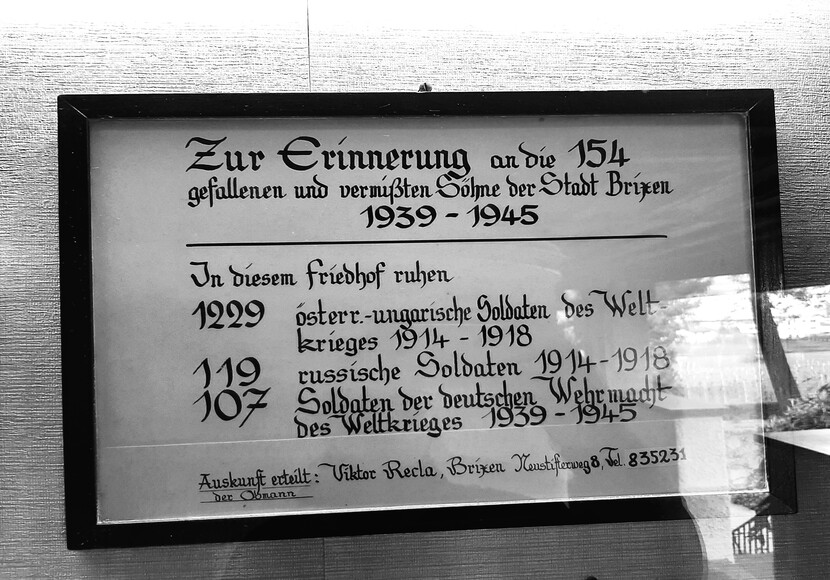 Zur Erinnerung an die 154
gefallenen und vermißten Söhne der Stadt Brixen
1939 - 1945
In diesem Friedhof ruhen
1229 österr.-ungarische Soldaten des Welt-
krieges 1914 - 1918
119 russische Soldaten 1914-1918
107 Soldaten der deutschen Wehrmacht
des Weltkrieges 1939 - 1945
Auskunft erteilt: Viktor Recla, Brixen Neustifterweg 8, Tel. 835231
der Obmann